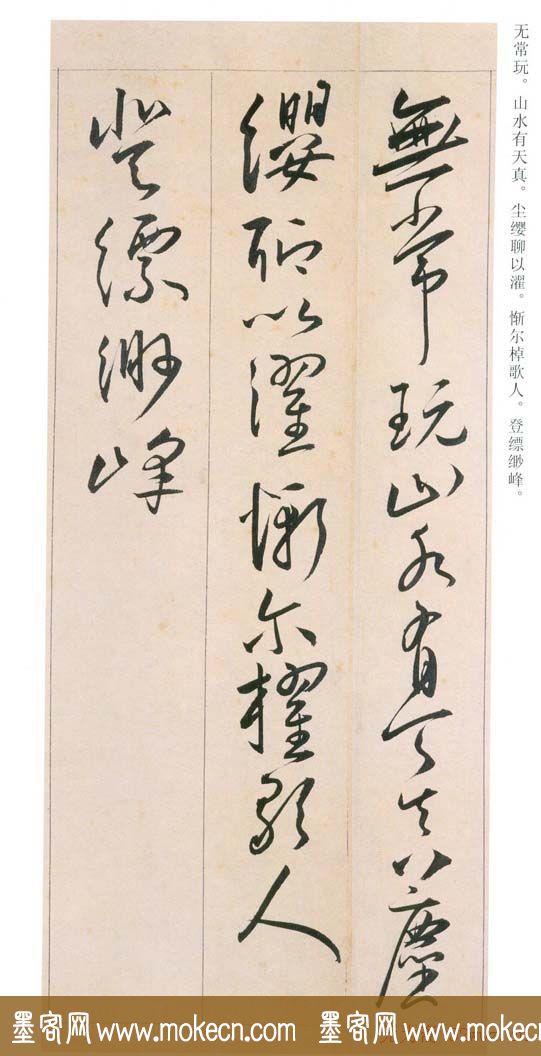 无常玩。山水有天真。尘缨聊以濯。惭尔棹歌人。登缥缈峰。
無常玩山水有天真塵
纓聊以濯慚尔櫂歌人
登縹緲峰
墨客网 www.mokecn.com 墨客网 www.mokecn.com